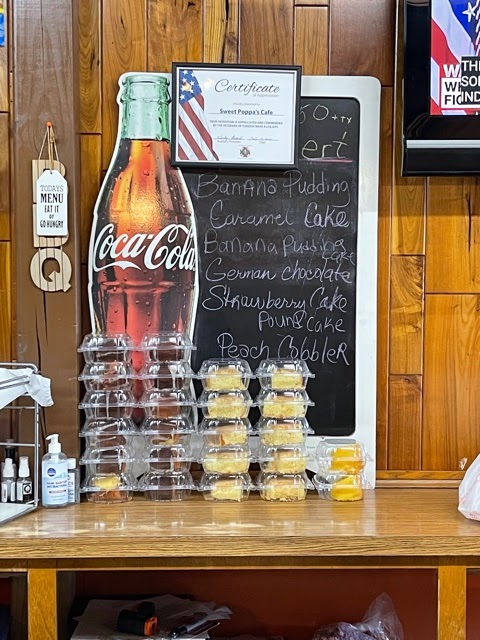 Certificate
of Appreciation
Sweet Poppa's Cafe
50 + TY
ert
Banana Pudding
Caramel Cake
Banana Pudding
Cake
German chocolate
Strawberry Cake
Pound Cake
Peach Cobbler
Coca-Cola
TODAYS
MENU
EAT IT
OR
GO HUNGRY
Q